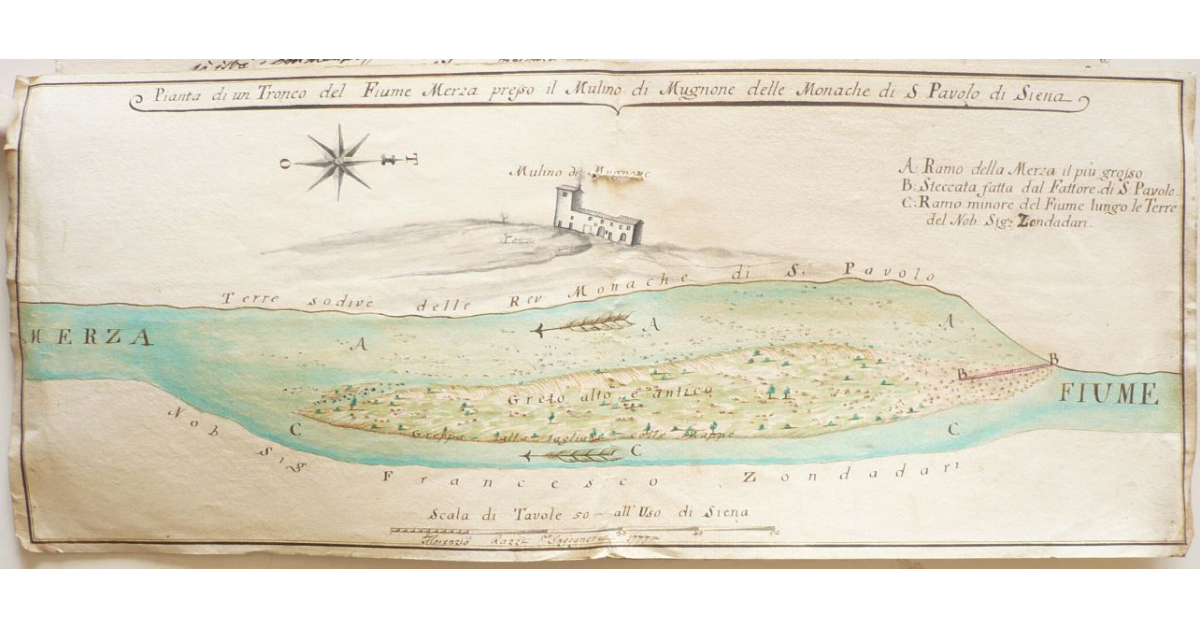 Pianta di un Tronco del Fiume Merza presso il Mulino di Mugnone delle Monache di S. Pavolo di Siena
O T
Mulino di Mugnone
A: Ramo della Merza il più grosso
B: Steccata fatta dal Fattore di S. Pavolo
C: Ramo minore del Fiume lungo le Terre
del Nob. Sig: Zondadari.
Terre sodive delle Rev. Monache di S. Pavolo
MERZA
A
A
A
B
B
FIUME
Greto alto e antico
C
C
C
Nob Sig
Francesco Zondadari
Scala di Tavole 50 all'Uso di Siena
Ingegnere 1777